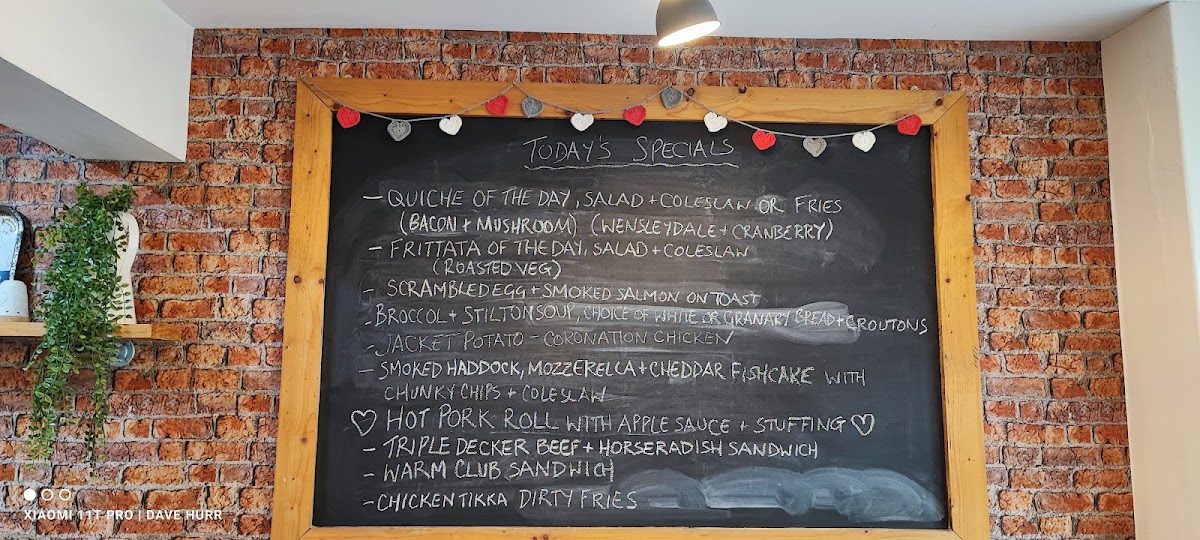 TODAY'S SPECIALS
- QUICHE OF THE DAY, SALAD + COLESLAW OR FRIES
(BACON + MUSHROOM) (WENSLEYDALE + CRANBERRY)
- FRITTATA OF THE DAY, SALAD + COLESLAW
(ROASTED VEG)
- SCRAMBLED EGG + SMOKED SALMON ON TOAST
- BROCCOL + STILTON SOUP, CHOICE OF WHITE OR GRANARY BREAD + CROUTONS
- JACKET POTATO - CORONATION CHICKEN
- SMOKED HADDOCK, MOZZERELLA + CHEDDAR FISHCAKE WITH
CHUNKY CHIPS + COLESLAW
♡ HOT PORK ROLL WITH APPLE SAUCE + STUFFING ♡
- TRIPLE DECKER BEEF + HORSERADISH SANDWICH
- WARM CLUB SANDWICH
- CHICKEN TIKKA DIRTY FRIES
XIAOMI 11T PRO | DAVE HURR